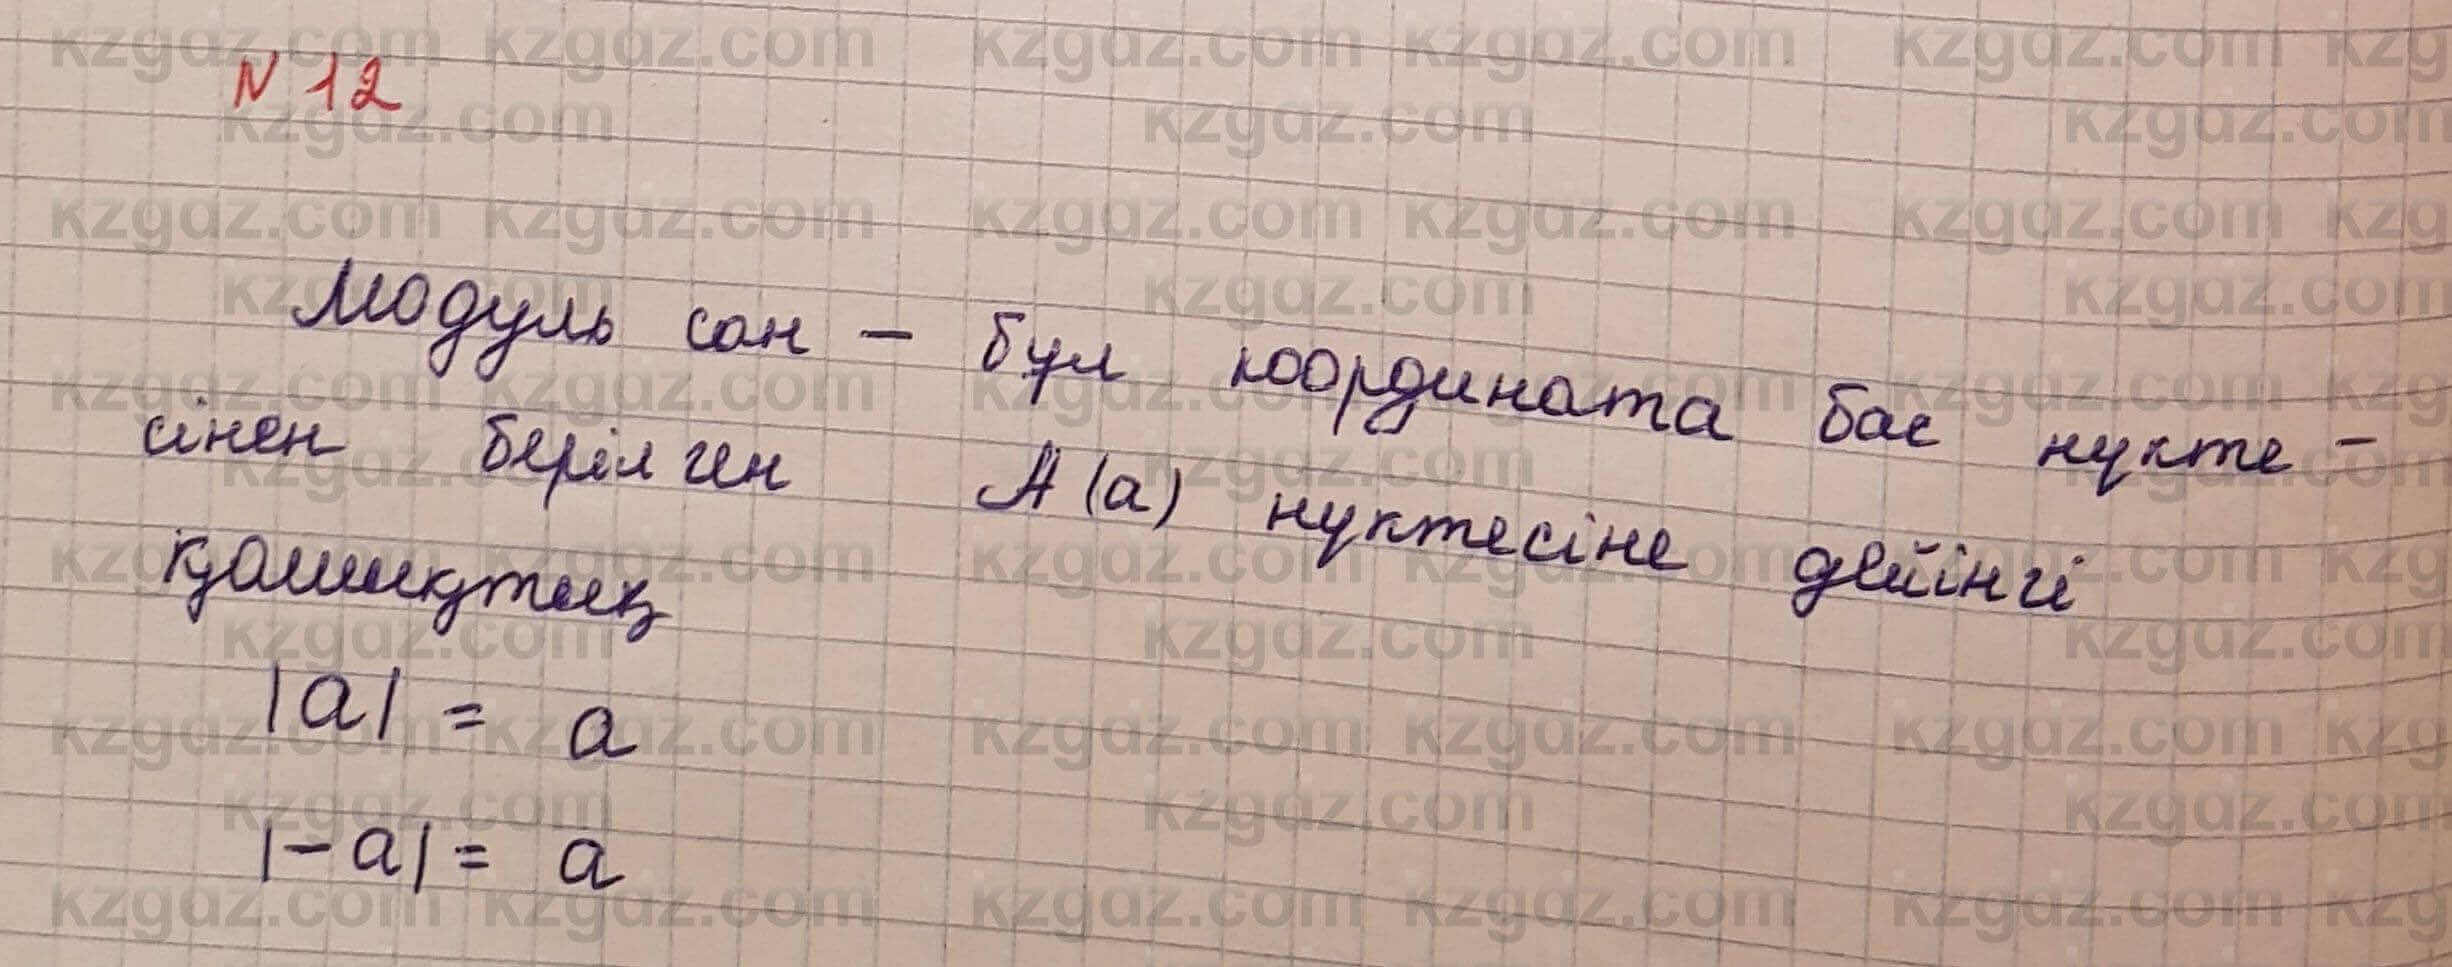 N 12
Модуль сан – бұл координата бас нүкте-
сінен берілген A(a) нүктесіне дейінгі
қашықтық
|a| = a
|-a| = a
kzgdz.com